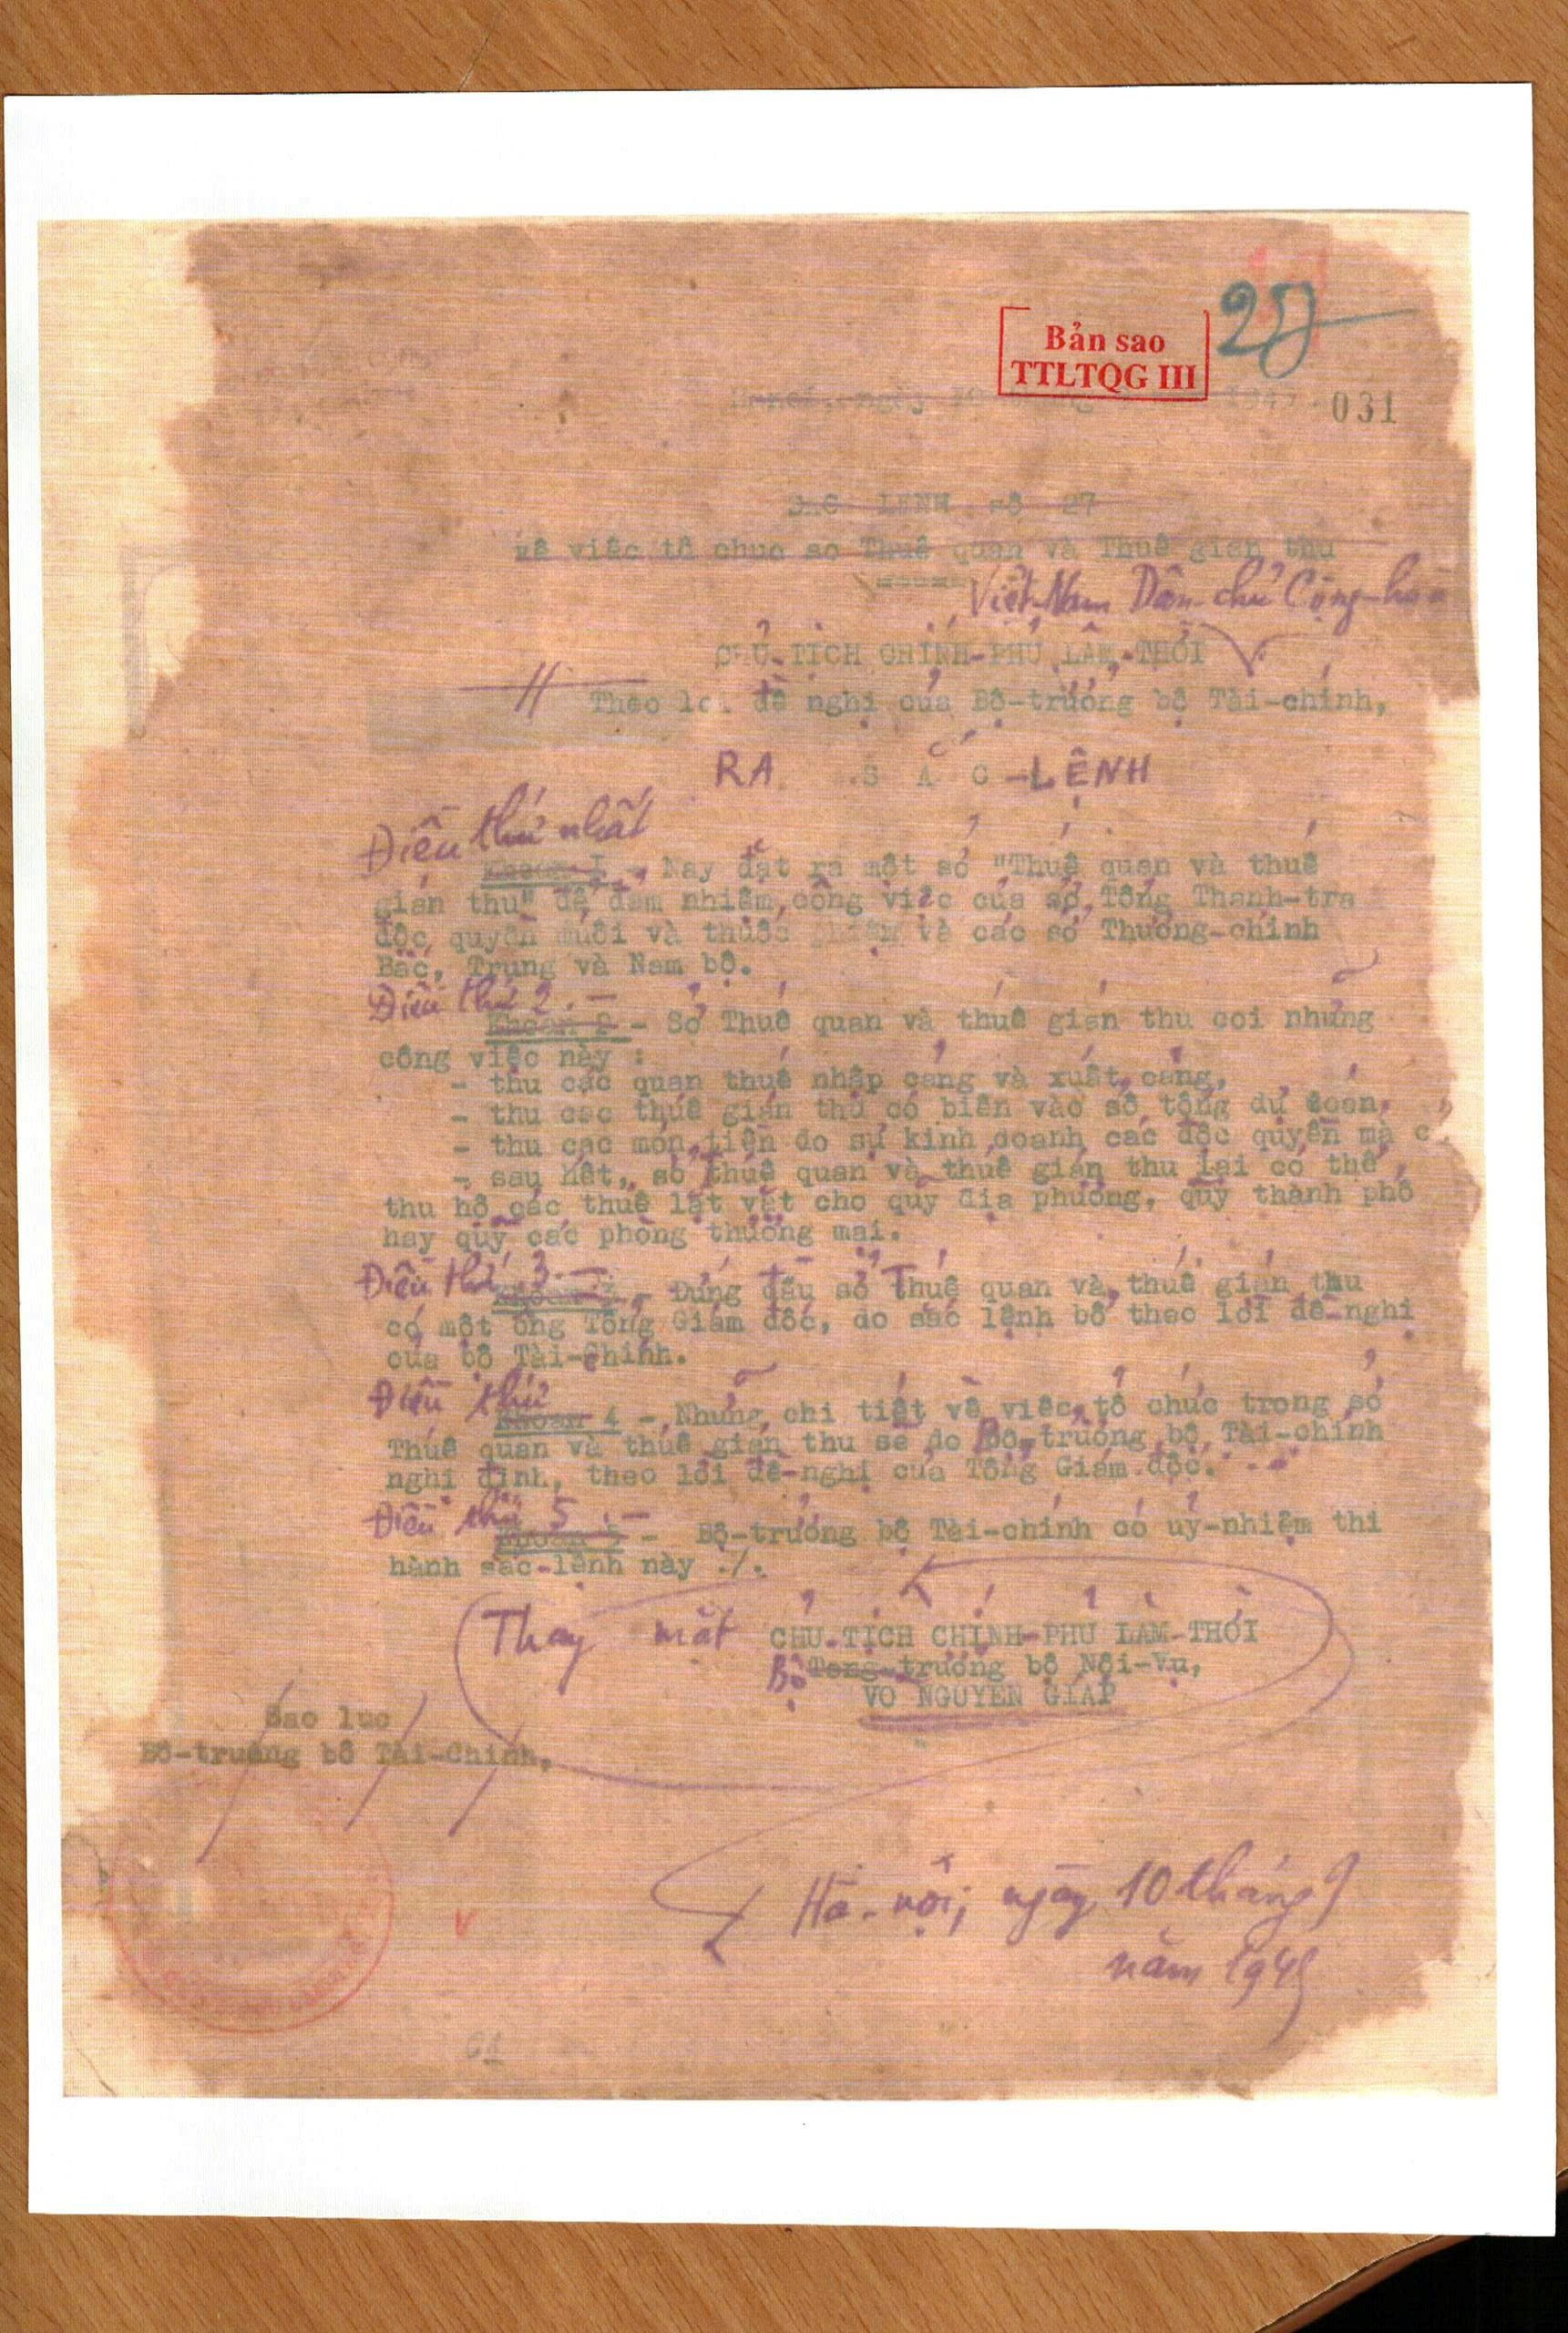 27
Bản sao
TTLTQG III
031
SẮC LỆNH số 27
về việc tổ chức sở Thuế quan và Thuế gián thu
Việt-Nam Dân-chủ Cộng-hoà
CHỦ-TỊCH CHÍNH-PHỦ LÂM-THỜI
Theo lời đề nghị của Bộ-trưởng bộ Tài-chính,
RA SẮC-LỆNH
Điều thứ nhất
Khoản I - Nay đặt ra một sở "Thuế quan và thuế
gián thu" để đảm nhiệm công việc của sở Tổng Thanh-tra
độc quyền muối và thuốc phiện và các sở Thương-chính
Bắc, Trung và Nam bộ.
Điều thứ 2.-
Khoản 2 - Sở Thuế quan và thuế gián thu coi những
công việc này :
- thu các quan thuế nhập cảng và xuất cảng,
- thu các thuế gián thu có biên vào số tổng dự toán,
- thu các món tiền do sự kinh doanh các độc quyền mà c
- sau hết, sở thuế quan và thuế gián thu lại có thể
thu hộ các thuế lặt vặt cho quỹ địa phương, quỹ thành phố
hay quỹ các phòng thương mại.
Điều thứ 3.-
Khoản 3 - Đứng đầu sở Thuế quan và thuế gián thu
có một ông Tổng Giám đốc, do sắc lệnh bổ theo lời đề-nghị
của bộ Tài-chính.
Điều thứ
Khoản 4 - Những chi tiết về việc tổ chức trong sở
Thuế quan và thuế gián thu sẽ do Bộ-trưởng bộ Tài-chính
nghị định, theo lời đề-nghị của Tổng Giám đốc.
Điều thứ 5.-
Khoản 5 - Bộ-trưởng bộ Tài-chính có uỷ-nhiệm thi
hành sắc-lệnh này ./.
Thay mặt CHỦ-TỊCH CHÍNH-PHỦ LÂM-THỜI
Bộ Tong-trưởng bộ Nội-Vụ,
VO NGUYEN GIAP
Sao luc
Bô-trưởng bô Tài-Chính,
Hà-nội, ngày 10 tháng 9
năm 1945